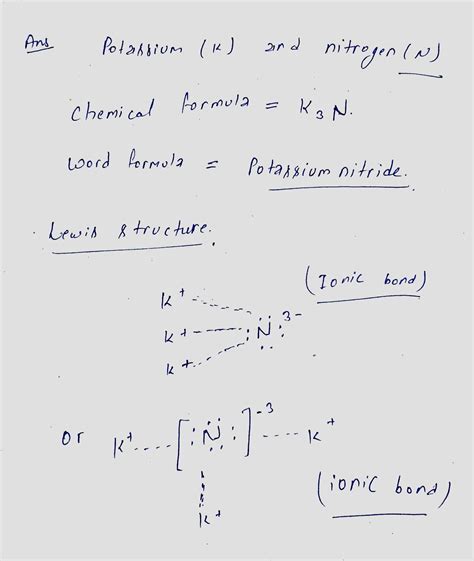 Ans Potassium (K) and nitrogen (N)
Chemical formula = K₃N.
word formula = Potassium nitride.
Lewis structure.
(Ionic bond)
K⁺
K⁺ :N: ³⁻
K⁺
or K⁺ [:N:]⁻³ K⁺
K⁺
(ionic bond)